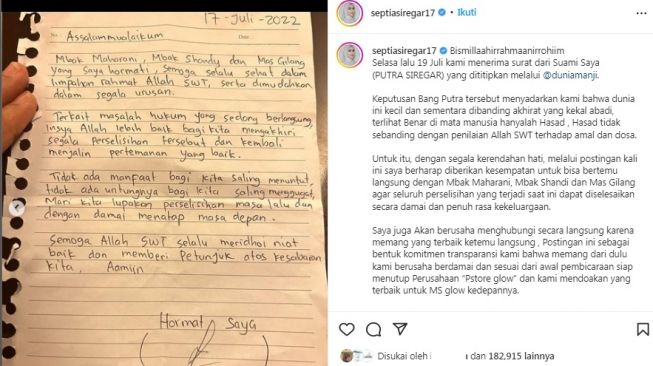 17-Juli-2022
No :
Date :
Assallammualaikum
Mbok Maharani, Mbak Shandy dan Mas Gilang
yang saya hormati, semoga selalu sehat dalam
limpahan rahmat Allah SWT, serta dimudahkan
dalam segala urusan.
Terkait masalah hukum yang sedang berlangsung,
Insya Allah lebih baik bagi kita mengakhiri
segala perselisihan tersebut dan kembali
menjalin pertemanan yang baik.
Tidak ada manfaat bagi kita saling menuntut,
tidak ada untungnya bagi kita saling menggugat,
Mari kita lupakan perselisihan masa lalu dan
dengan damai menatap masa depan.
Semoga Allah SWT selalu meridhoi niat
baik dan memberi Petunjuk atas kesabaran
kita, Aamiin
Hormat Saya
septiasiregar17 • Ikuti
septiasiregar17 Bismillaahirrahmaanirrohiim
Selasa lalu 19 Juli kami menerima surat dari Suami Saya
(PUTRA SIREGAR) yang dititipkan melalui @duniamanji.
Keputusan Bang Putra tersebut menyadarkan kami bahwa dunia
ini kecil dan sementara dibanding akhirat yang kekal abadi,
terlihat Benar di mata manusia hanyalah Hasad , Hasad tidak
sebanding dengan penilaian Allah SWT terhadap amal dan dosa.
Untuk itu, dengan segala kerendahan hati, melalui postingan kali
ini saya berharap diberikan kesempatan untuk bisa bertemu
langsung dengan Mbak Maharani, Mbak Shandi dan Mas Gilang
agar seluruh perselisihan yang terjadi saat ini dapat diselesaikan
secara damai dan penuh rasa kekeluargaan.
Saya juga Akan berusaha menghubungi secara langsung karena
memang yang terbaik ketemu langsung , Postingan ini sebagai
bentuk komitmen transparansi kami bahwa memang dari dulu
kami berusaha berdamai dan sesuai dari awal pembicaraan siap
menutup Perusahaan “Pstore glow” dan kami mendoakan yang
terbaik untuk MS glow kedepannya.
Disukai oleh dan 182,915 lainnya